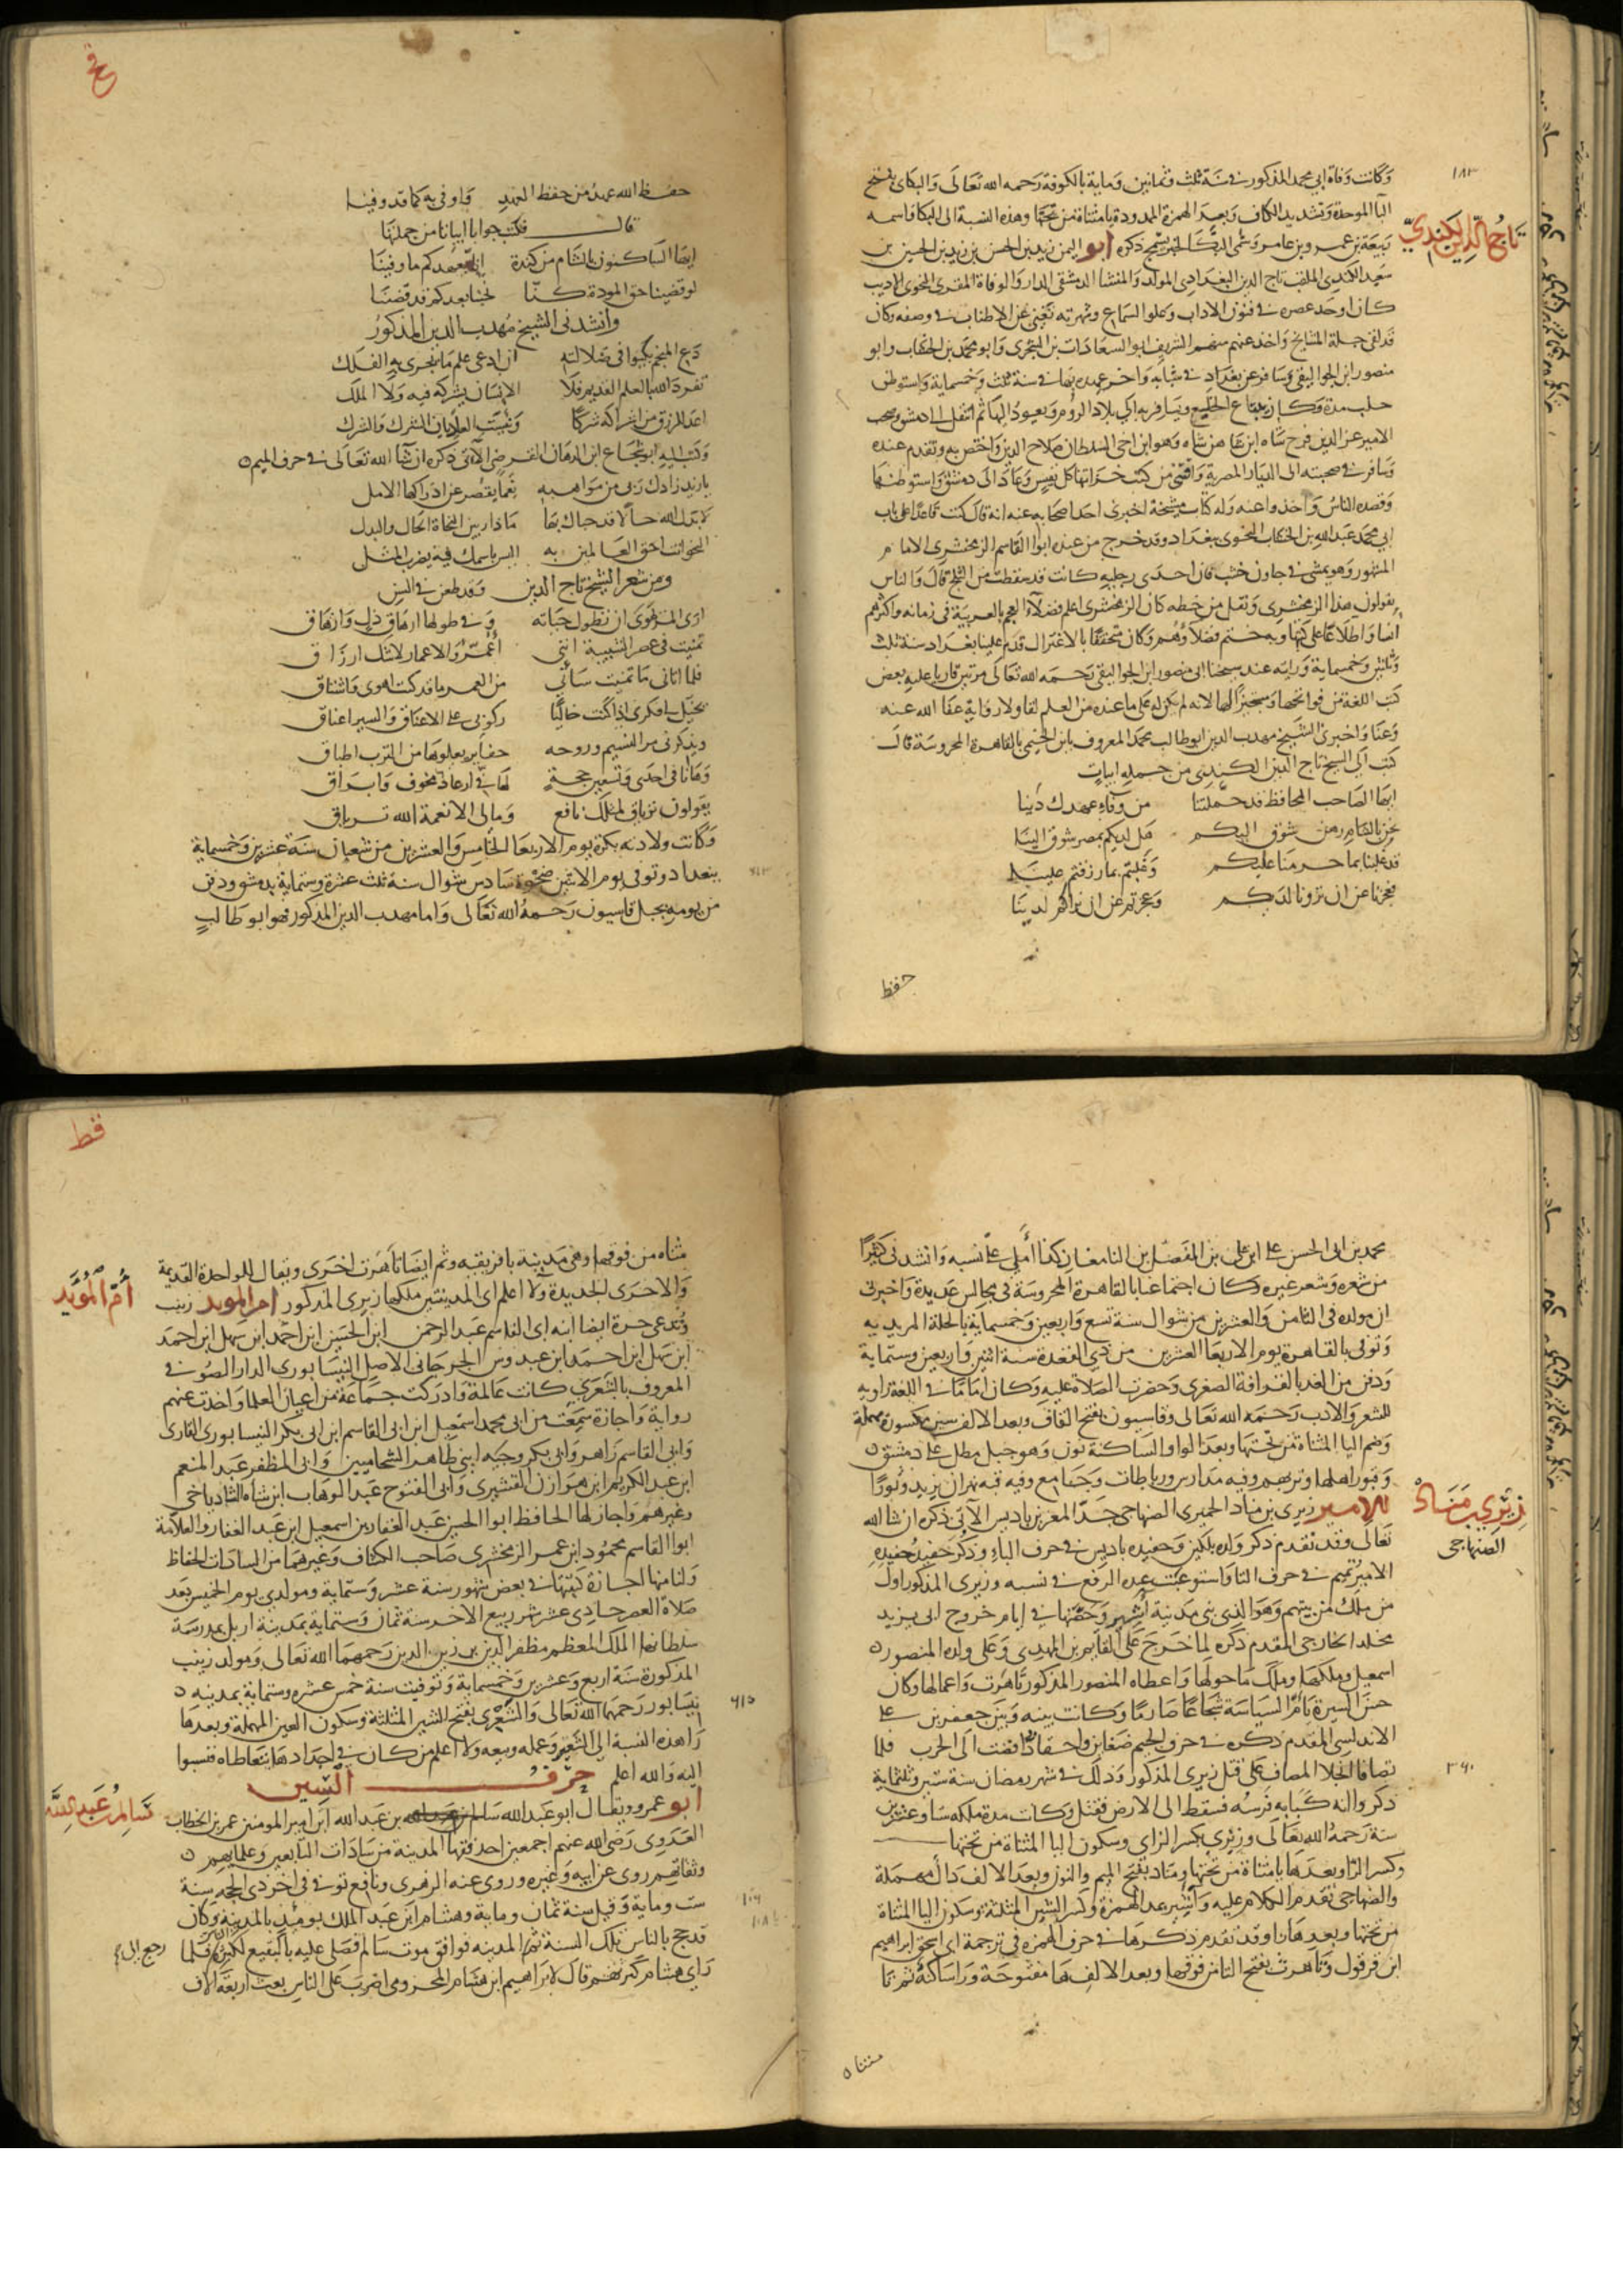 ١٨٣
وكانت وفاة ابي محمد المذكور في سنة ثلث وثمانين وماية بالكوفة رحمه الله تعالى والبكائي بفتح
البا الموحدة وتشديد الكاف وبعد الهمزة الممدودة يا مثناة من تحتها وهذه النسبة الى البكا واسمه
تاج الدين الكندي
ربيعة بن عمرو بن عامر وسمي البكا لخبر يسمج ذكره ابو اليمن زيد بن الحسن بن زيد بن الحسين بن
سعيد الكندي الملقب تاج الدين البغدادي المولد والمنشا الدمشقي الدار والوفاة المقري النحوي الاديب
كان اوحد عصره في فنون الاداب وعلو السماع وشهرته تغني عن الاطناب في وصفه وكان
قد لقي جملة المشايخ واخذ عنهم منهم الشريف ابو السعادات بن الشجري وابو محمد بن الخشاب وابو
منصور ابن الجواليقي وسافر عن بغداد في شبابه واخر عهده بها في سنة ثلث وخمسماية واستوطن
حلب مدة وكان يبتاع الخليع ويسافر به الى بلاد الروم ويعود اليها ثم انتقل الى دمشق وصحب
الامير عز الدين فرخ شاه ابن شاهنشاه وهو ابن اخي السلطان صلاح الدين واختص به وتقدم عنده
وسافر في صحبته الى الديار المصرية واقتنى من كتب خزاينها كل نفيس وعاد الى دمشق واستوطنها
وقصده الناس واخذوا عنه وله كتاب مشيخة اخبرني احد اصحابه عنه انه قال كنت قاعدا على باب
ابي محمد عبد الله بن الخشاب النحوي ببغداد وقد خرج من عنده ابو القاسم الزمخشري الامام
المشهور وهو يمشي في جاون خشب فان احدى رجليه كانت قد سقطت من الثلج قال والناس
يقولون هذا الزمخشري ونقل من خطه كان الزمخشري اعلم فضلاء العجم بالعربية في زمانه واكثرهم
انسا واطلاعا على كتبها وبه ختم فضلاؤهم وكان متحققا بالاعتزال قدم علينا بغداد سنة ثلث
وثلثين وخمسماية ورايته عند شيخنا ابي منصور ابن الجواليقي رحمه الله تعالى مرتين قاريا عليه بعض
كتب اللغة من فواتحها ومستجيزا لها لانه لم يكن له على ما عنده من العلم لقا ولا رواية عفا الله عنه
وعنا واخبرني الشيخ مهدب الدين ابو طالب محمد المعروف بابن الخيمي بالقاهرة المحروسة قال
كتب الي الشيخ تاج الدين الكندي من جملة ابيات
ايها الصاحب المحافظ قد حملتنا من وفاء عهدك دينا
نحن بالشام رهن شوق اليكم هل لديكم بمصر شوق الينا
قد غلبنا بما حرمنا عليكم وغلبتم بما رزقتم علينا
فعجزنا عن ان ترونا لديكم وعجزتم عن ان نراكم لدينا
حفظ
حفظ الله عهد من حفظ العهد واوفى به كما قد وفينا
قال فكتب جوابا ابياتا من جملتها
ايها الساكنون بالشام من كندة انا بعهدكم ما وفينا
لو قضينا حق المودة كنا نحبنا بعدكم قد قضينا
وانشدني الشيخ مهدب الدين المذكور
دع المنجم يكبوا في ضلالته ان ادعى علم ما يجري به الفلك
تفرد الله بالعلم القديم فلا الانسان يشركه فيه ولا الملك
اعد للرزق من اشراكه شركا وبئست العدتان الشرك والشرك
وكتب اليه ابو شجاع ابن الدهان الفرضي الآتي ذكره ان شا الله تعالى في حرف الميم
يا زيد زادك ربي من مواهبه نعما يقصر عن ادراكها الامل
لا بدل الله حالا قد حباك بها ما دار بين النحاة الحال والبدل
النحو انت احق العالمين به اليس باسمك فيه يضرب المثل
ومن شعر الشيخ تاج الدين وقد طعن في السن
ارى المرء يهوى ان تطول حياته وفي طولها ارهاق ذل وازهاق
تمنيت في عصر الشبيبة انني اعمر والاعمار لا شك ارزاق
فلما اتاني ما تمنيت ساني من العمر ما قد كنت اهوى واشتاق
يخيل لي فكري اذا كنت خاليا ركوبي على الاعناق والسير اعناق
ويذكرني مر النسيم وروحه حفاير يعلوها من الترب اطباق
وها انا في احدى وتسعين حجة لها في ارعاد مخوف وابراق
يقولون ترياق لمثلك نافع ومالي الا نعمة الله ترياق
وكانت ولادته بكرة يوم الاربعا الخامس والعشرين من شعبان سنة عشرين وخمسماية
٦١٣
ببغداد وتوفي يوم الاثنين ضحوة سادس شوال سنة ثلث عشرة وستماية بدمشق ودفن
من يومه بجبل قاسيون رحمه الله تعالى واما مهدب الدين المذكور فهو ابو طالب
محمد بن ابي الحسن علي ابن علي بن المفضل بن التامغار كذا املى علي نسبه وانشدني كثيرا
من شعره وشعر غيره وكان اجتماعنا بالقاهرة المحروسة في مجالس عديدة واخبرني
ان مولده في الثامن والعشرين من شوال سنة تسع واربعين وخمسماية بالحلة المزيديه
وتوفي بالقاهرة يوم الاربعا العشرين من ذي القعدة سنة اثنين واربعين وستماية
ودفن من الغد بالقرافة الصغرى وحضرت الصلاة عليه وكان اماما في اللغة راويه
للشعر والادب رحمه الله تعالى وقاسيون بفتح القاف وبعد الالف سين مكسورة مهملة
وضم اليا المثناة من تحتها وبعد الواو الساكنة نون وهو جبل مطل على دمشق
وقبور اهلها وتربهم وفيه مدارس ورباطات وجامع وفيه قبه نهران يزيد وثورا
زيري بن مناد
الصنهاجي
الامير زيري بن مناد الحميري الصنهاجي جد المعز بن باديس الآتي ذكره ان شا الله
تعالى وقد تقدم ذكر ولده بلكين وحفيده باديس في حرف الباء وذكر حفيد حفيده
الامير تميم في حرف التا واستوعبت عده الرفع في نسبه وزيري المذكور اول
من ملك من بيتهم وهو الذي بنى مدينة آشير وحصنها في ايام خروج ابي يزيد
مخلد الخارجي المقدم ذكره لما خرج على القايم بن المهدي وعلى ولده المنصور
اسمعيل وملكها وملك ما حولها واعطاه المنصور المذكور تاهرت واعمالها وكان
حسن السيرة تام السياسة شجاعا صارما وكانت بينه وبين جعفر بن علي
الاندلسي المقدم ذكره في حرف الجيم ضغاين واحقاد افضت الى الحرب فلما
٣٦٠
تصافا انجلا المصاف على قتل زيري المذكور وذلك في شهر رمضان سنة ستين وثلثماية
ذكروا انه كبا به فرسه فسقط الى الارض فقتل وكانت مدة ملكه ستا وعشرين
سنة رحمه الله تعالى وزيري بكسر الزاي وسكون اليا المثناة من تحتها
وكسر الرا وبعدها يا مثناة من تحتها ومناد بفتح الميم والنون وبعد الالف دال مهملة
والصنهاجي تقدم الكلام عليه وآشير بمد الهمزة وكسر الشين المثلثة وسكون اليا المثناة
من تحتها وبعدها را وقد تقدم ذكرها في حرف الهمزه في ترجمة ابي اسحق ابراهيم
ابن قرقول وتاهرت بفتح التا من فوقها وبعد الالف ها مفتوحة ورا ساكنة ثم تا
مثناه
مثناه من فوقها وهي مدينة بافريقيه وثم ايضا تاهرت اخرى ويقال للواحدة القديمة
ام المؤيد
والاخرى الجديدة ولا اعلم اي المدينتين ملكها زيري المذكور ام المويد زينب
وتدعى حرة ايضا ابنه ابي القاسم عبد الرحمن ابن الحسن ابن احمد ابن سهل ابن احمد
ابن سهل ابن احمد ابن عبدوس الجرجاني الاصل النيسابوري الدار الصوفي
المعروف بالشعري كانت عالمة وادركت جماعة من اعيان العلما واخذت عنهم
رواية واجازة سمعت من ابي محمد اسمعيل ابن ابي القاسم ابن ابي بكر النيسابوري القاري
وابي القاسم زاهر وابي بكر وجيه ابني طاهر الشحاميين وابي المظفر عبد المنعم
ابن عبد الكريم ابن هوازن القشيري وابي الفتوح عبد الوهاب ابن شاه الشادياخي
وغيرهم واجاز لها الحافظ ابوا الحسن عبد الغفار بن اسمعيل ابن عبد الغفار والعلامة
ابوا القاسم محمود ابن عمر الزمخشري صاحب الكشاف وغيرهما من السادات الحفاظ
ولنا منها اجازة كتبتها في بعض شهور سنة عشر وستماية ومولدي يوم الخميس بعد
صلاة العصر حادي عشر شهر ربيع الاخر سنة ثمان وستماية بمدينة اربل بمدرسة
سلطانها الملك المعظم مظفر الدين بن زين الدين رحمهما الله تعالى ومولد زينب
المذكورة سنة اربع وعشرين وخمسماية وتوفيت سنة خمس عشره وستماية بمدينه
٦١٥
نيسابور رحمها الله تعالى والشعري بفتح الشين المثلثة وسكون العين المهملة وبعدها
را هذه النسبة الى الشعر وعمله وبيعه ولا اعلم من كان في اجدادها يتعاطاه فنسبوا
اليه والله اعلم حرف السين
سالم بن عبد الله
ابو عمرو ويقال ابو عبد الله سالم بن عبد الله ابن امير المومنين عمر بن الخطاب
العدوي رضي الله عنهم اجمعين احد فقها المدينة من سادات التابعين وعلمايهم
وثقاتهم روى عن ابيه وغيره وروى عنه الزهري ونافع توفي في اخر ذي الحجه سنة
١٠٦
ست وماية وقيل سنة ثمان وماية وهشام ابن عبد الملك يومئذ بالمدينة وكان
١٠٨
قد حج بالناس تلك السنة ثم المدينه فوافق موت سالم فصلى عليه بالبقيع لكثرة الناس فلما
راى هشام كثرتهم قال لابراهيم ابن هشام المخزومي اضرب على الناس بعث اربعة الاف